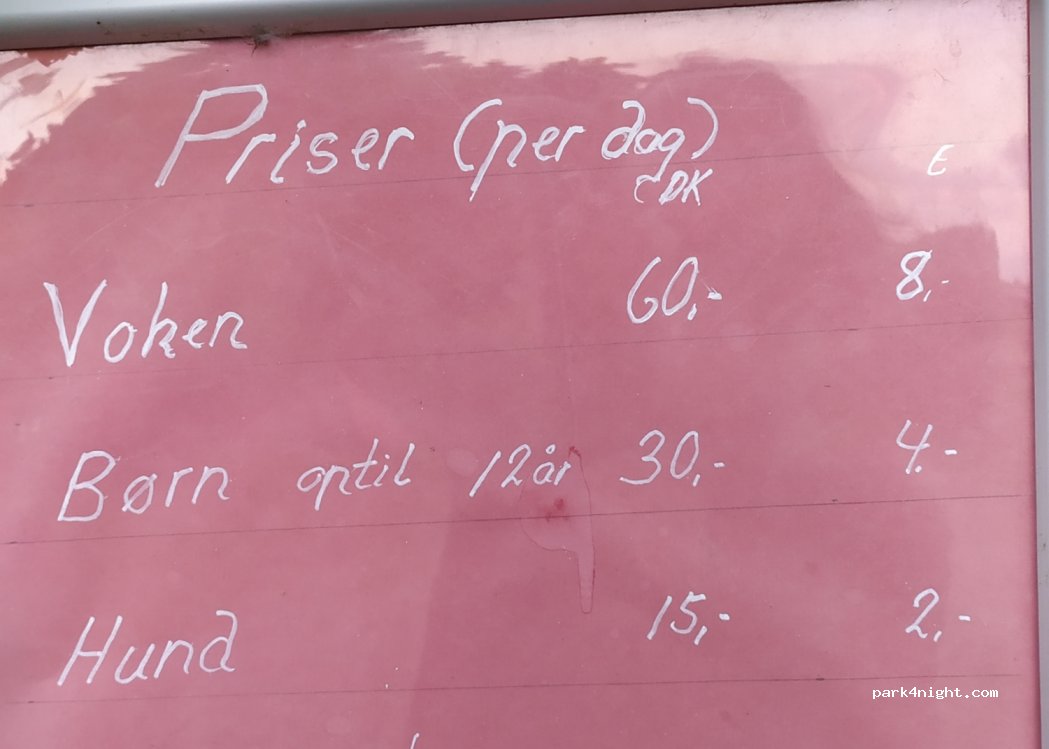 Priser (per dag)
CDK E
Voken 60,- 8,-
Børn optil 12år 30,- 4,-
Hund 15,- 2,-
park4night.com